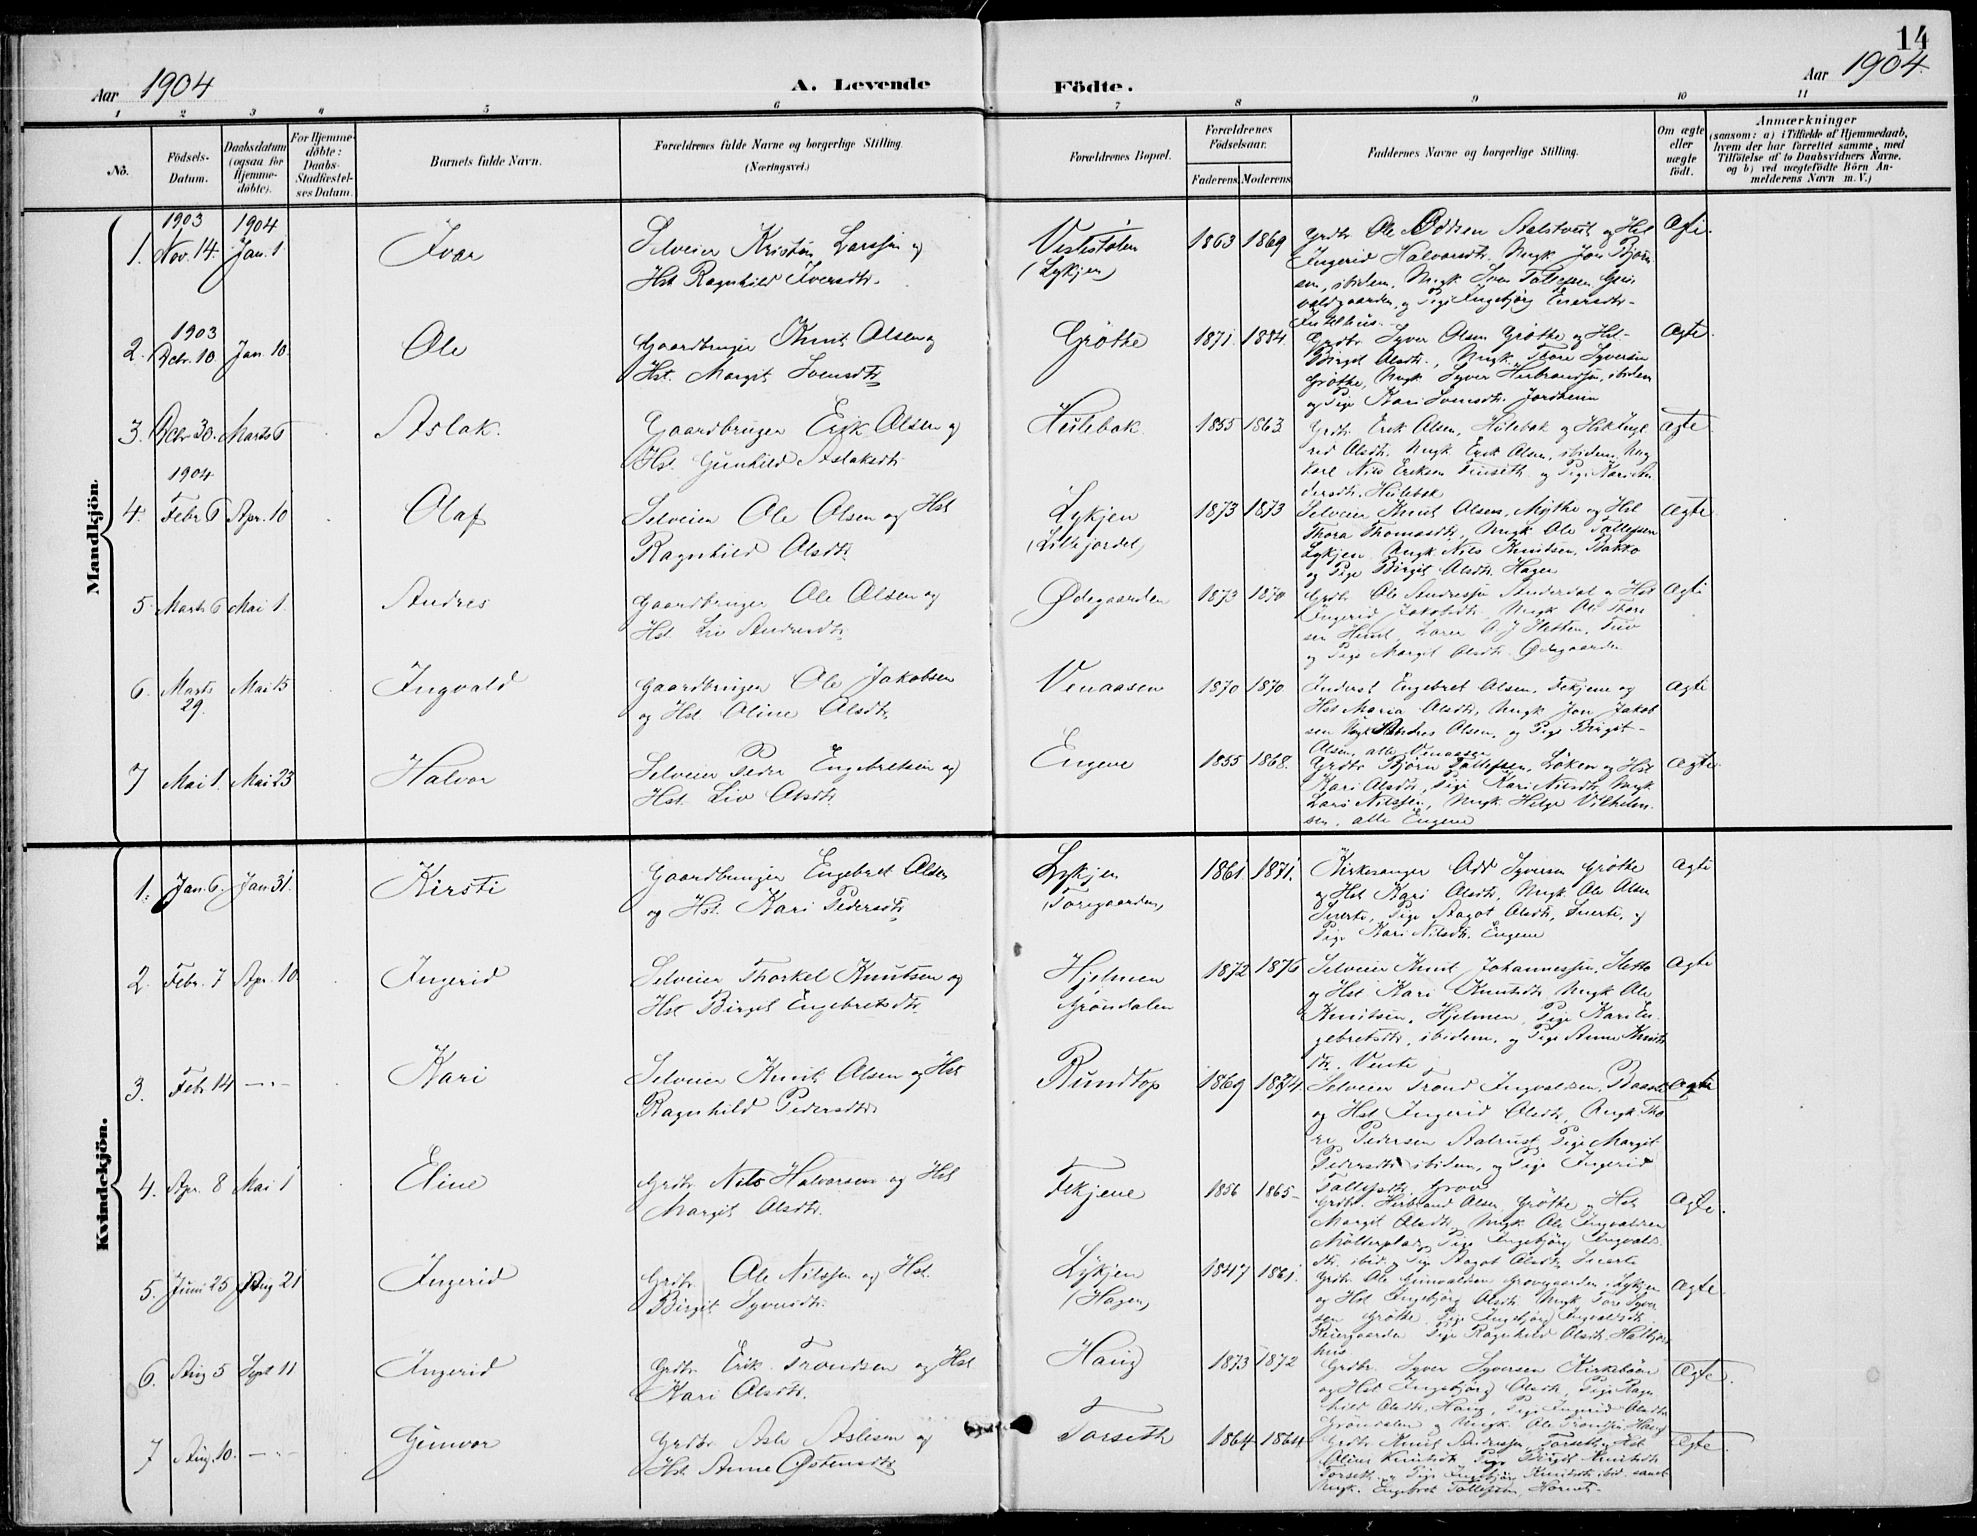 14
Aar 1904
A. Levende
Födte.
Aar 1904.
1 2 3 4 5 6 7 8 9 10 11
No.
Födsels-
Datum.
Daabsdatum
(ogsaa for
Hjemme-
döbte).
For Hjemme-
döbte:
Daabs-
Stadfæstel-
ses Datum.
Barnets fulde Navn.
Forældrenes fulde Navne og borgerlige Stilling
(Næringsvei.)
Forældrenes Bopæl.
Forældrenes
Födselsaar.
Faderens. Moderens.
Faddernes Navne og borgerlige Stilling.
Om ægte
eller
uægte
födt.
Anmærkninger
(saasom: a) i Tilfælde af Hjemmedaab,
hvem der har forrettet samme, med
Tilföielse af to Daabsvidners Navne.
og b) ved uægtefödte Börn An-
melderens Navn m. V.)
Mandkjön.
1903 1904
1. Nov. 14. Jan. 1
Ivar
Selveier Kristen Larssen og
Hst. Ragnhild Iversdtr.
Veslestølen
(Lykjen)
1863 1869
Grdbr Ole Oddsen Aalstveit og Hst
Ingerid Halvorsdtr. Ungk Jon Bjørn
sen, ibidem, Ungk Sven Tollefsen
og Pige Ingebjørg
Ægte.
1903
2. Dcbr. 10 Jan. 10.
Ole
Gaardbruger Knut Olsen og
Hst. Margit Svensdtr
Grøthe
1871. 1884.
Grdbr. Syver Olsen Grøthe og Hst-
Birgit Olsdtr., Ungk. Thore Syversen
Grøthe, Ungk Syver Herbrandsen, ibidem
og Pige Kari Svensdtr. Jordheim
Ægte.
3. Dcbr 30. Marts 6
Aslak.
Gaardbruger Erik Olsen og
Hst. Gunhild Aslaksdtr
Hulebak.
1855 1863.
Grdbr Erik Olsen, Hulebak og Hst Inge
rid Olsdtr. Ungk Erik Olsen, ibidem, Ung
karl Nils Eriksen og Pige Kari An
dersdtr. Hulebak
Ægte
1904
4. Febr 6 Apr. 10
Olaf
Selveier Ole Olsen og Hst
Ragnhild Olsdtr
Lykjen
(Lillejordet)
1873 1873
Selveier Knut Olsen, Mythe og Hst
Thora Thomasdtr, Ungk Ole Tollefsen
Lykjen, Ungk. Nils Knudsen, Bakko
og Pige Birgit Olsdtr. Hagen
Ægte
5. Marts 6 Mai 1.
Andres
Gaardbruger Ole Olsen og
Hst. Liv Andresdtr
Ødegaarden
1873 1870
Grdbr Ole Andressen Anderdal og Hst
Ingerid Jakobsdtr. Ungk Ole Thore
sen
og Pige Margit Olsdtr. Ødegaarden
Ægte
6. Marts
29.
Mai 15
Ingvald
Gaardbruger Ole Jakobsen
og Hst. Oline Olsdtr.
Venaasen
1870 1870.
Inderst Engebret Olsen, Fekjene og
Hst Maria Olsdtr, Ungk Jon Jakob
sen Ungk Andres Olsen, og Pige Birgit
Olsen, alle Venaasen
Ægte
7 Mai 1. Mai 23
Halvor
Selveier Peder Engebretsen og
Hst. Liv Olsdtr
Engene
1855 1868.
Grdbr Bjørn Tollefsen, Løken og Hst
Kari Olsdtr, Pige Kari Nilsdtr, Ungk
Lars Nilssen, Ungk. Helge Vilhelm
sen, alle Engene
Ægte.
Kvindekjön.
1. Jan. 6. Jan. 31.
Kirsti
Gaardbruger Engebret Olsen
og Hst. Kari Pedersdtr,
Lykjen
(Toregaarden)
1861. 1871.
Kirkesanger Odd Syversen Grøthe
og Hst Kari Olsdtr, Ungk Ole Olsen
Pige Aagot Olsdtr, og
Pige Kari Nilsdtr. Engene
Ægte
2. Febr. 7 Apr. 10.
Ingerid
Selveier Thorkel Knutsen og
Hst Birgit Engebretsdtr.
Hjelmen
Grøndalen
1872 1876
Selveier Knut Johannessen,
og Hst Kari Knutsdtr, Ungk Ole
Knutsen, Hjelmen, Pige Kari En-
gebretsdtr, ibidem, og Pige Anne Knuts
dtr.
Ægte
3. Febr 14 -"-
Kari
Selveier Knut Olsen og Hst
Ragnhild Pedersdtr
Rundtop
1869 1874.
Selveier Trond Ingvaldsen,
og Hst Ingerid Olsdtr, Ungk Tho
re Pedersen Aalrust, Pige Margit
Pedersdtr ibidem, og Pige Ingerid
Tollefsdtr, Grov
Ægte
4. Apr. 8 Mai 1
Eline
Grdbr. Nils Halvorsen og Hst
Margit Olsdtr.
Fekjene
1856 1865
Grdbr. Herbrand Olsen Grøthe og Hst
Margit Olsdtr, Ungk Ole Ingvaldsen
Møllerplads, Pige Ingebjørg Ingvalds
dtr. ibid. og Pige Aagot Olsdtr,
Ægte.
5. Juni 25 Aug 21
Ingerid
Grdbr. Ole Nilssen og Hst.
Birgit Syversdtr.
Lykjen
(Hagen)
1847 1861.
Grdbr Ole Gunvaldsen Lykjen
og Hst Ingebjørg Olsdtr, Ungk Tore Syver
sen Grøthe, Pige Ingebjørg Ingvaldsdtr
Pige Ragnhild Olsdtr.
Ægte.
6. Aug 5 Sept 11
Ingerid
Grdbr. Erik Trondsen og Hst
Kari Olsdtr.
Haug
1873 1872
Grdbr. Syver Syversen Kirkebøen
og Hst Ingebjørg Olsdtr, Pige Ragn
hild Olsdtr. Haug, Pige Ingerid Olsdtr
Grøndalen og Ungk. Ole Trondsen Haug
Ægte.
7 Aug. 10. -"-
Gunvor
Grdbr. Asle Aslesen og
Hst. Anne Østensdtr
Torseth
1864 1864
Grdbr. Knut Andressen Torseth og Hst
Oline Knutsdtr, Pige Birgit Knutsdtr
Torseth, og Pige Ingebjørg Knutsdtr ibid. samt
Ungk. Engebret Tollefsen,
Ægte.